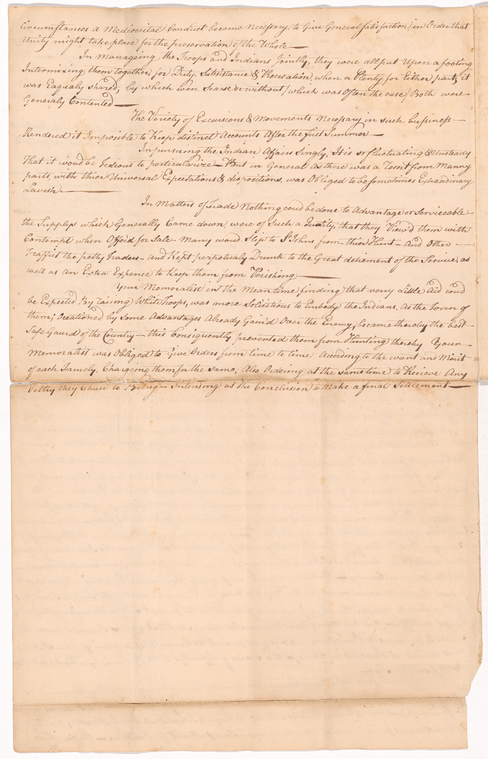 Circumstances a Mediocrital Conduct became Necessary, to Give General satisfaction, in Order that
Unity might take place for the preservation of the Whole —
In Manageing the Troops and Indians Jointly, they were all put Upon a footing
Intermixing them together, for Duty, Subsistance & Recreation, when a Plenty for Either party it
was Eaqually Shared, by which when Scarse or without (which was often the case) Both were
Generaly Contented —
The Variety of Excursions & Movements Necessary in such Business
Rendered it Imposible to Keep distinct Accounts After the first Summer —
In pursuing the Indian Affairs Singly, It is so fluctuating & Unsteady
That it woud be Tedious to perticularize — But in General as there was a Resort from Many
parts, with their Universal Expectations & dispositions, was Obliged to be sometimes Extraordinary
Lavish —
In Matters of Trade Nothing coud be done to Advantage or Serviceable
the Supplys which Generally Came down, were of Such a Quality, that they View'd them with
Contempt when Offer'd for Sale — Many woud Step to St Johns from their Hunt — and Other
Traffict the petty Traders — and Kept perpetialy Drunk to the Great detriment of the Service, as
well as an Extra Expence to Keep them from Perishing —
Your Memorialist in the Mean time, finding that very Little aid coud
be Expected By raising White Troops, was more Solicitious to Embody the Indians, As the Terror of
them, Occationed by Some Advantages Already Gain'd Over the Enemy, became thereby the best
Safe Gaurd of the Country — this Consiquently prevented them from Hunting thereby Your
Memorialist was Obliged to Give Orders from time to time According to the want and Merit
of each Family, Chargeing them for the Same, Also Ordering at the same time to Receive Any
Peltry they Chuse to Bring — Intending at the Conclusion to Make a final Settlement —